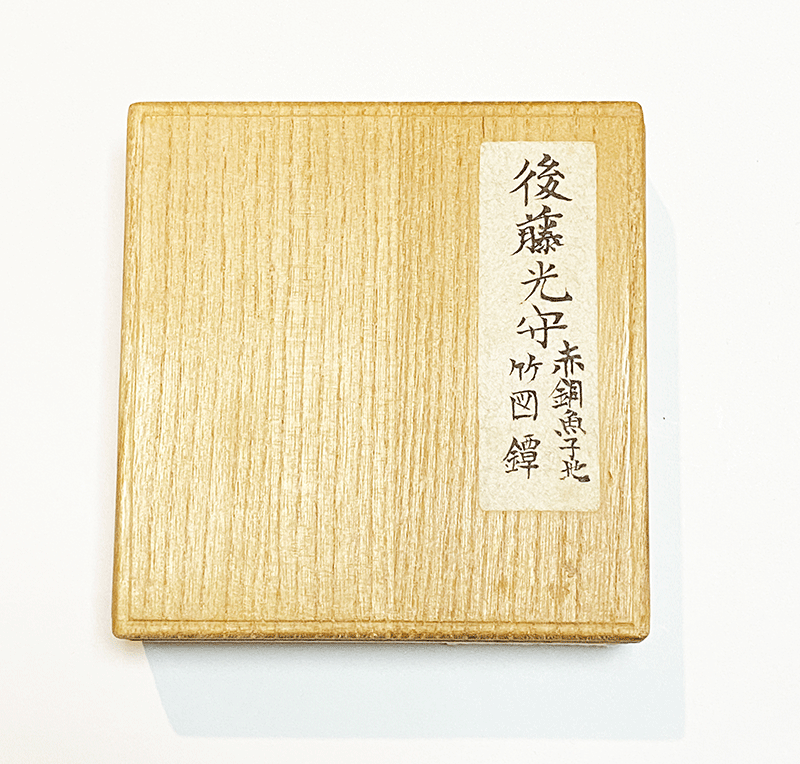 後藤光守
赤銅魚子地
竹図鐔